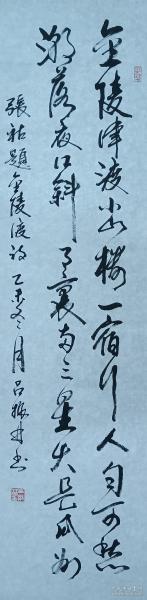 金陵津渡小山樓一宿行人自可愁
潮落夜江斜月裏兩三星火是瓜洲
張祜題金陵渡詩乙未冬月呂書